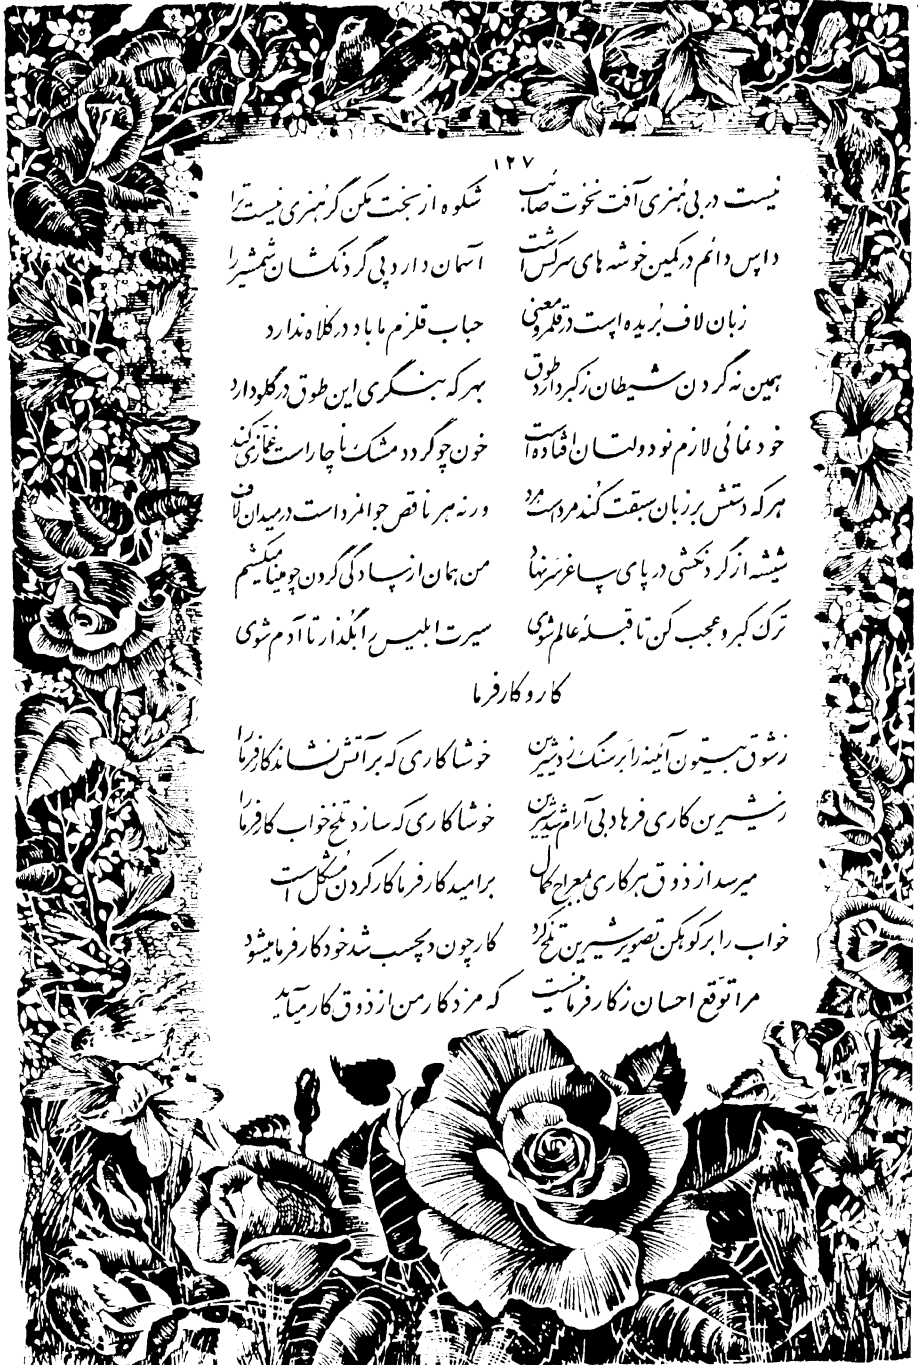 ۱۲۷
نیست در بی هنری آفت نخوت صائب شکوه از بخت مکن گر هنری نیست ترا
داس دائم در کمین خوشه های سرکش است آسمان دارد پی گردنکشان شمشیر را
زبان لاف بریده است در قلمرو معنی حباب قلزم ما باد در کلاه ندارد
همین نه گردن شیطان ز کبر دارد طوق بهر که بنگری این طوق در گلو دارد
خودنمائی لازم نودولتان افتاده است خون چو گردد مشک ناچار است غمازی کند
هر که دستش بر زبان سبقت کند مرد است مرد ورنه هر ناقص جوانمرد است در میدان لاف
شیشه از گردنکشی در پای ساغر سر نهاد من همان از سادگی گردن چو مینا میکشم
ترک کبر و عجب کن تا قبلهٔ عالم شوی سیرت ابلیس را بگذار تا آدم شوی
کار و کارفرما
ز شوق بیستون آئینه را بر سنگ زد شیرین خوشا کاری که بر آتش نشاند کارفرما را
ز شیرین کاری فرهاد بی آرام شد شیرین خوشا کاری که سازد تلخ خواب کارفرما را
میرسد از ذوق هر کاری بمعراج کمال بر امید کارفرما کار کردن مشکل است
خواب را بر کوهکن تصویر شیرین تلخ کرد کار چون دلچسب شد خود کارفرما میشود
مرا توقع احسان ز کارفرما نیست که مزد کار من از ذوق کار میآید